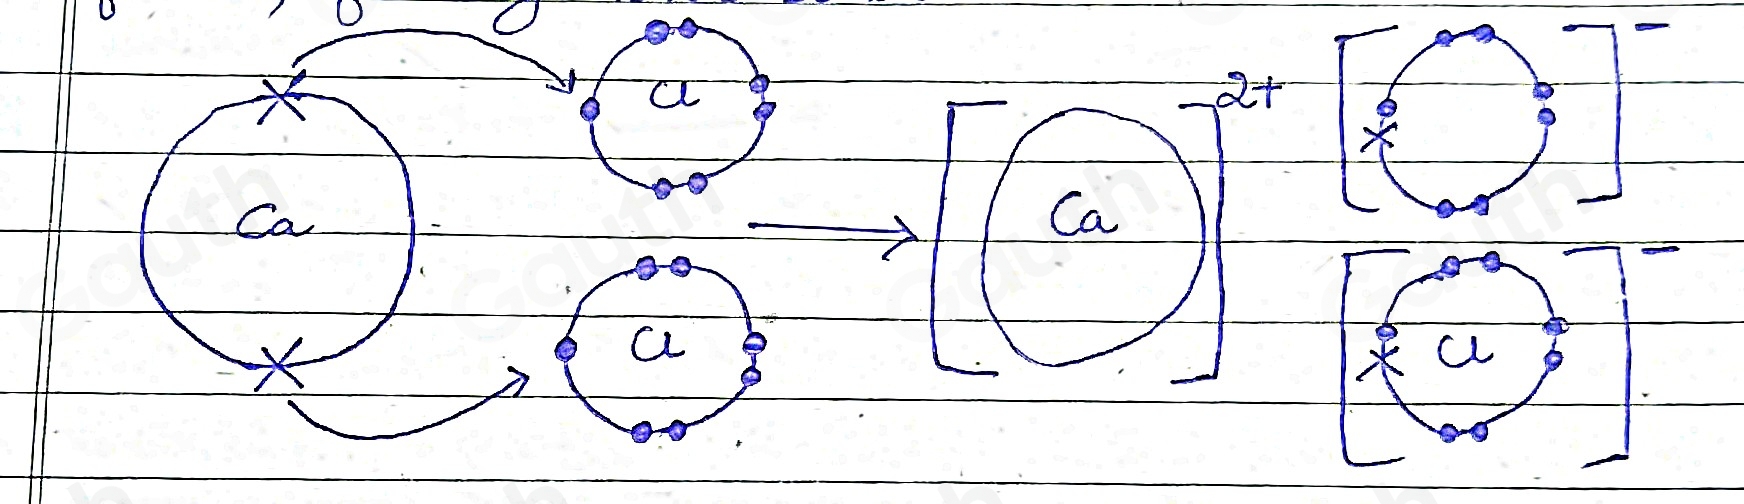 Cl
Ca
Cl
Ca
2+
-
Cl
-